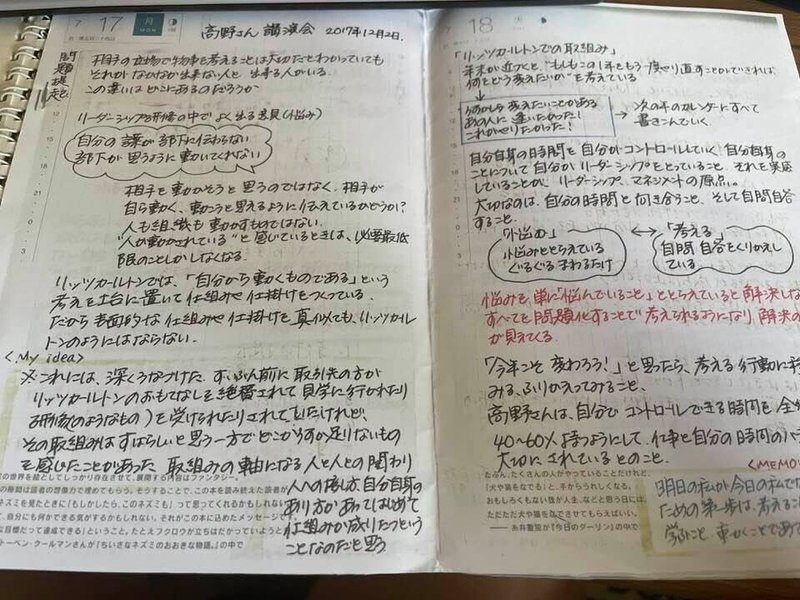 7 17 月 MON
高野さん 講演会 2017年12月2日.
問題提起
相手の立場で物事を考えることは大切だとわかっていても
それがなかなか出来ない人と 出来る人がいる.
この違いは どこにあるのだろうか
リーダーシップ研修の中で よく出る意見(悩み)
自分の言葉が部下に伝わらない
部下が思うように動いてくれない
相手を動かそうと思うのではなく、相手が
自ら動く、動こうと思えるように伝えているかどうか?
人も組織も動かすものではない.
"人が動かされている"と感じているときは、必要最低
限のことしかしなくなる.
リッツカールトンでは、「自分から動くものである」という
考えを土台に置いて仕組みや仕掛けをつくっている.
だから表面的な仕組みや仕掛けを真似ても、リッツカールト
ンのようにはならない.
<My idea>
※これには、深くうなづけた. ずいぶん前に 取引先の方が
リッツカールトンのおもてなしを絶賛されて見学に行かれたり
研修のようなもの)を受けられたりされてもいたけれど、
その取組みはすばらしいと思う一方でどこかなにか足りないもの
を感じたことがあった. 取組みの軸になる人と人との関わり
人への接し方、自分自身の
あり方があってはじめて
仕組みが成りたつという
ことなのだと思う
の世界を絵としてしっかり存在させて、展開する内容はファンタジー。
の隙間は読者の想像力で埋めてもらう。そうすることで、この本を読み終えた読者が
ネズミを見たときに「もしかしたら、このネズミも」って思ってくれるかもしれない
て、自分にも何かできる気がするかもしれない。それがこの本に込めたメッセージで
な目標だって達成できる」ということ。たとえフクロウが立ちはだかっていようと
トーベン・クールマンさんが『ちいさなネズミのおおきな物語。』の中で
7 18 火 TUE
「リッツカールトンでの取組み」
年末が近づくと、"もしもこの1年をもう一度やり直すことができれば、
何をどう変えたいか"を考えている
変えたいことがある
あの人に逢いたかった!
これがやりたかった!
→ 次の年のカレンダーにすべて
書きこんでいく.
自分自身の時間を自分がコントロールしていく 自分自身の
ことについて自分がリーダーシップをとっていること、それを実感
していることが リーダーシップ、マネジメントの原点.
大切なのは、自分の時間と向き合うこと、そして自問自答
すること.
「悩む」 ↔ 「考える」
悩みととらえている
ぐるぐるまわるだけ
自問自答をくりかえし
ている
悩みを、単に「悩んでいること」ととらえていると解決しな
すべてを問題化することで"考えられるようになり、解決の
が見えてくる.
「今年こそ変わろう!」と思ったら、考える行動に
みる、ふりかえってみること、
高野さんは、自分でコントロールできる時間を全
40〜60%持つようにして、仕事と自分の時間のバ
大切にされているとのこと.
<MEMO
たぶん、たくさんの人がやっていることだけれど、
「犬や猫をなでる」と、手からうれしくなる。
おもしろくもない数が人生、などと思う日には、
ただただ犬や猫をなでさせてもらえばいい。
――糸井重里が『今日のダーリン』の中で
明日の私が今日の私でな
ための第一歩は、考えるこ
学ぶこと、東かくことであ